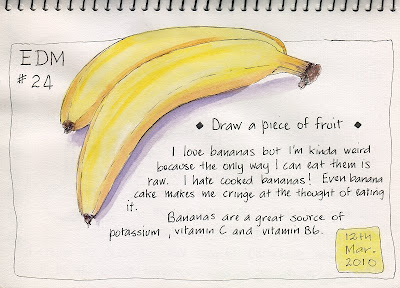 EDM
# 24
◆ Draw a piece of fruit ◆
I love bananas but I'm kinda weird
because the only way I can eat them is
raw. I hate cooked bananas! Even banana
cake makes me cringe at the thought of eating
it.
Bananas are a great source of
potassium, vitamin C and vitamin B6.
12th
Mar.
2010